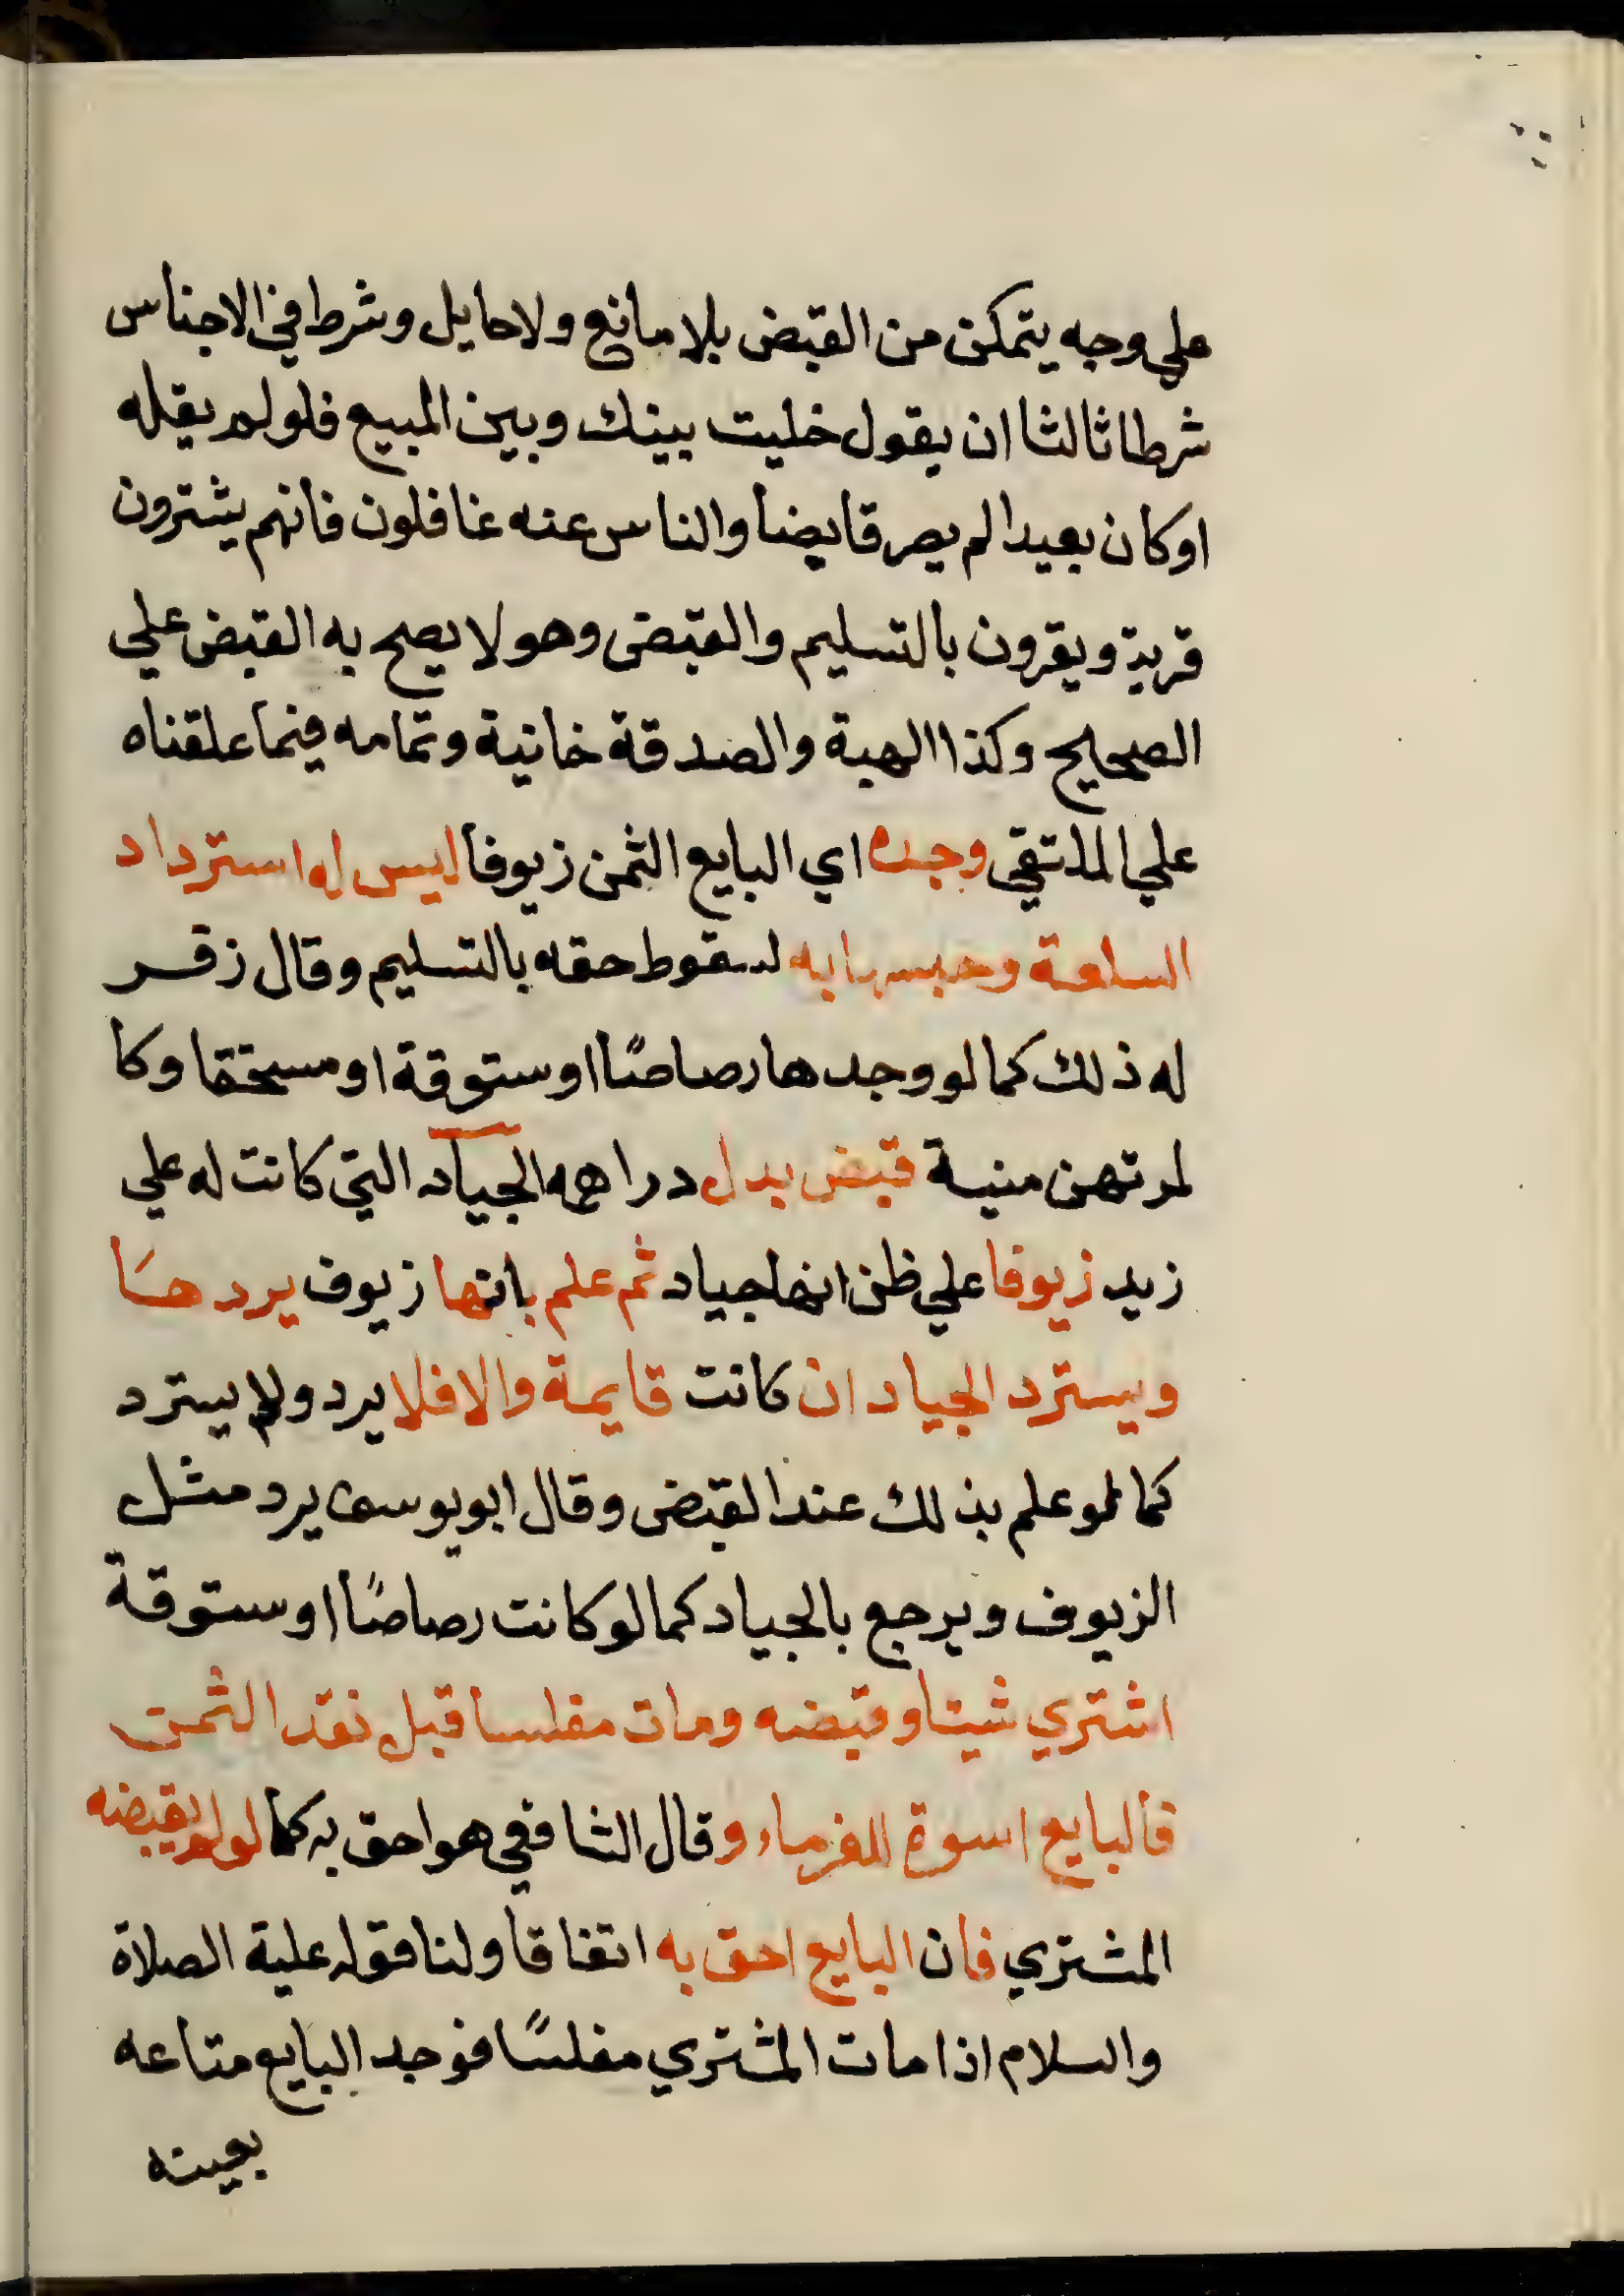 علي وجه يتمكن من القبض بلا مانع ولا حايل وشرط في الاجناس
شرطا ثالثا ان يقول خليت بينك وبين المبيع فلو لم يقله
او كان بعيدا لم يصر قابضا والناس عنه غافلون فانهم يشترون
قرية ويقرون بالتسليم والقبض وهو لا يصح به القبض علي
الصحيح وكذا الهبة والصدقة خانية وتمامه فيما علقناه
علي الملتقي وجده اي البايع الثمن زيوفا ليس له استرداد
السلعة وحبسها به لسقوط حقه بالتسليم وقال زفر
له ذلك كما لو وجدها رصاصًا او ستوقة او مستحقا وكا
لمرتهن منية قبض بدل دراهمه الجياد التي كانت له علي
زيد زيوفا علي ظن انها جياد ثم علم بانها زيوف يردها
ويسترد الجياد ان كانت قايمة والا فلا يرد ولا يسترد
كما لو علم بذلك عند القبض وقال ابو يوسف يرد مثل
الزيوف ويرجع بالجياد كما لو كانت رصاصًا او ستوقة
اشتري شيئا وقبضه ومات مفلسا قبل نقد الثمن
فالبايع اسوة للغرماء وقال الشافعي هو احق به كما لو لم يقبضه
المشتري فان البايع احق به اتفاقا ولنا قوله علية الصلاة
والسلام اذا مات المشتري مفلسًا فوجد البايع متاعه
بعينه